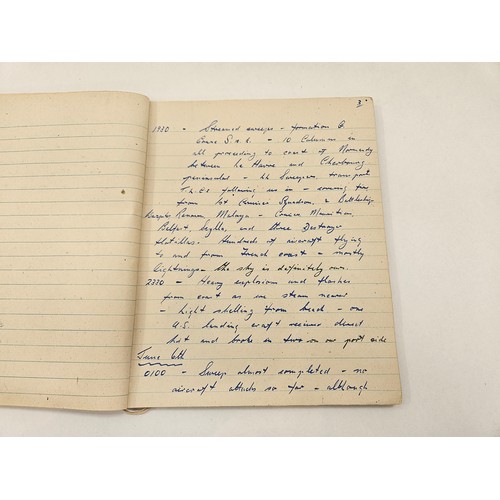 3.
1930 - Streamed sweeps - formation G
S & E. - 10 Columns in
all proceeding to coast of Normandy
between Le Havre and Cherbourg
peninsular - hh Sweepers, transport
following us in - covering fire
from 1st Cruiser Squadron, 2 Battleships
Ramon, Malaya - Cruiser Mauritius,
Belfast, Scylla, and three Destroyer
flotillas. Hundreds of aircraft flying
to and from French coast - mostly
Lightnings - the sky is definitely ours.
2230 - Heavy explosions and flashes
from coast as we steam nearer
- light shelling from beach - one
U.S. landing craft received direct
hit and broke in two on our port side
June 6th
0100 - Sweep almost completed - no
aircraft attacks so far - although